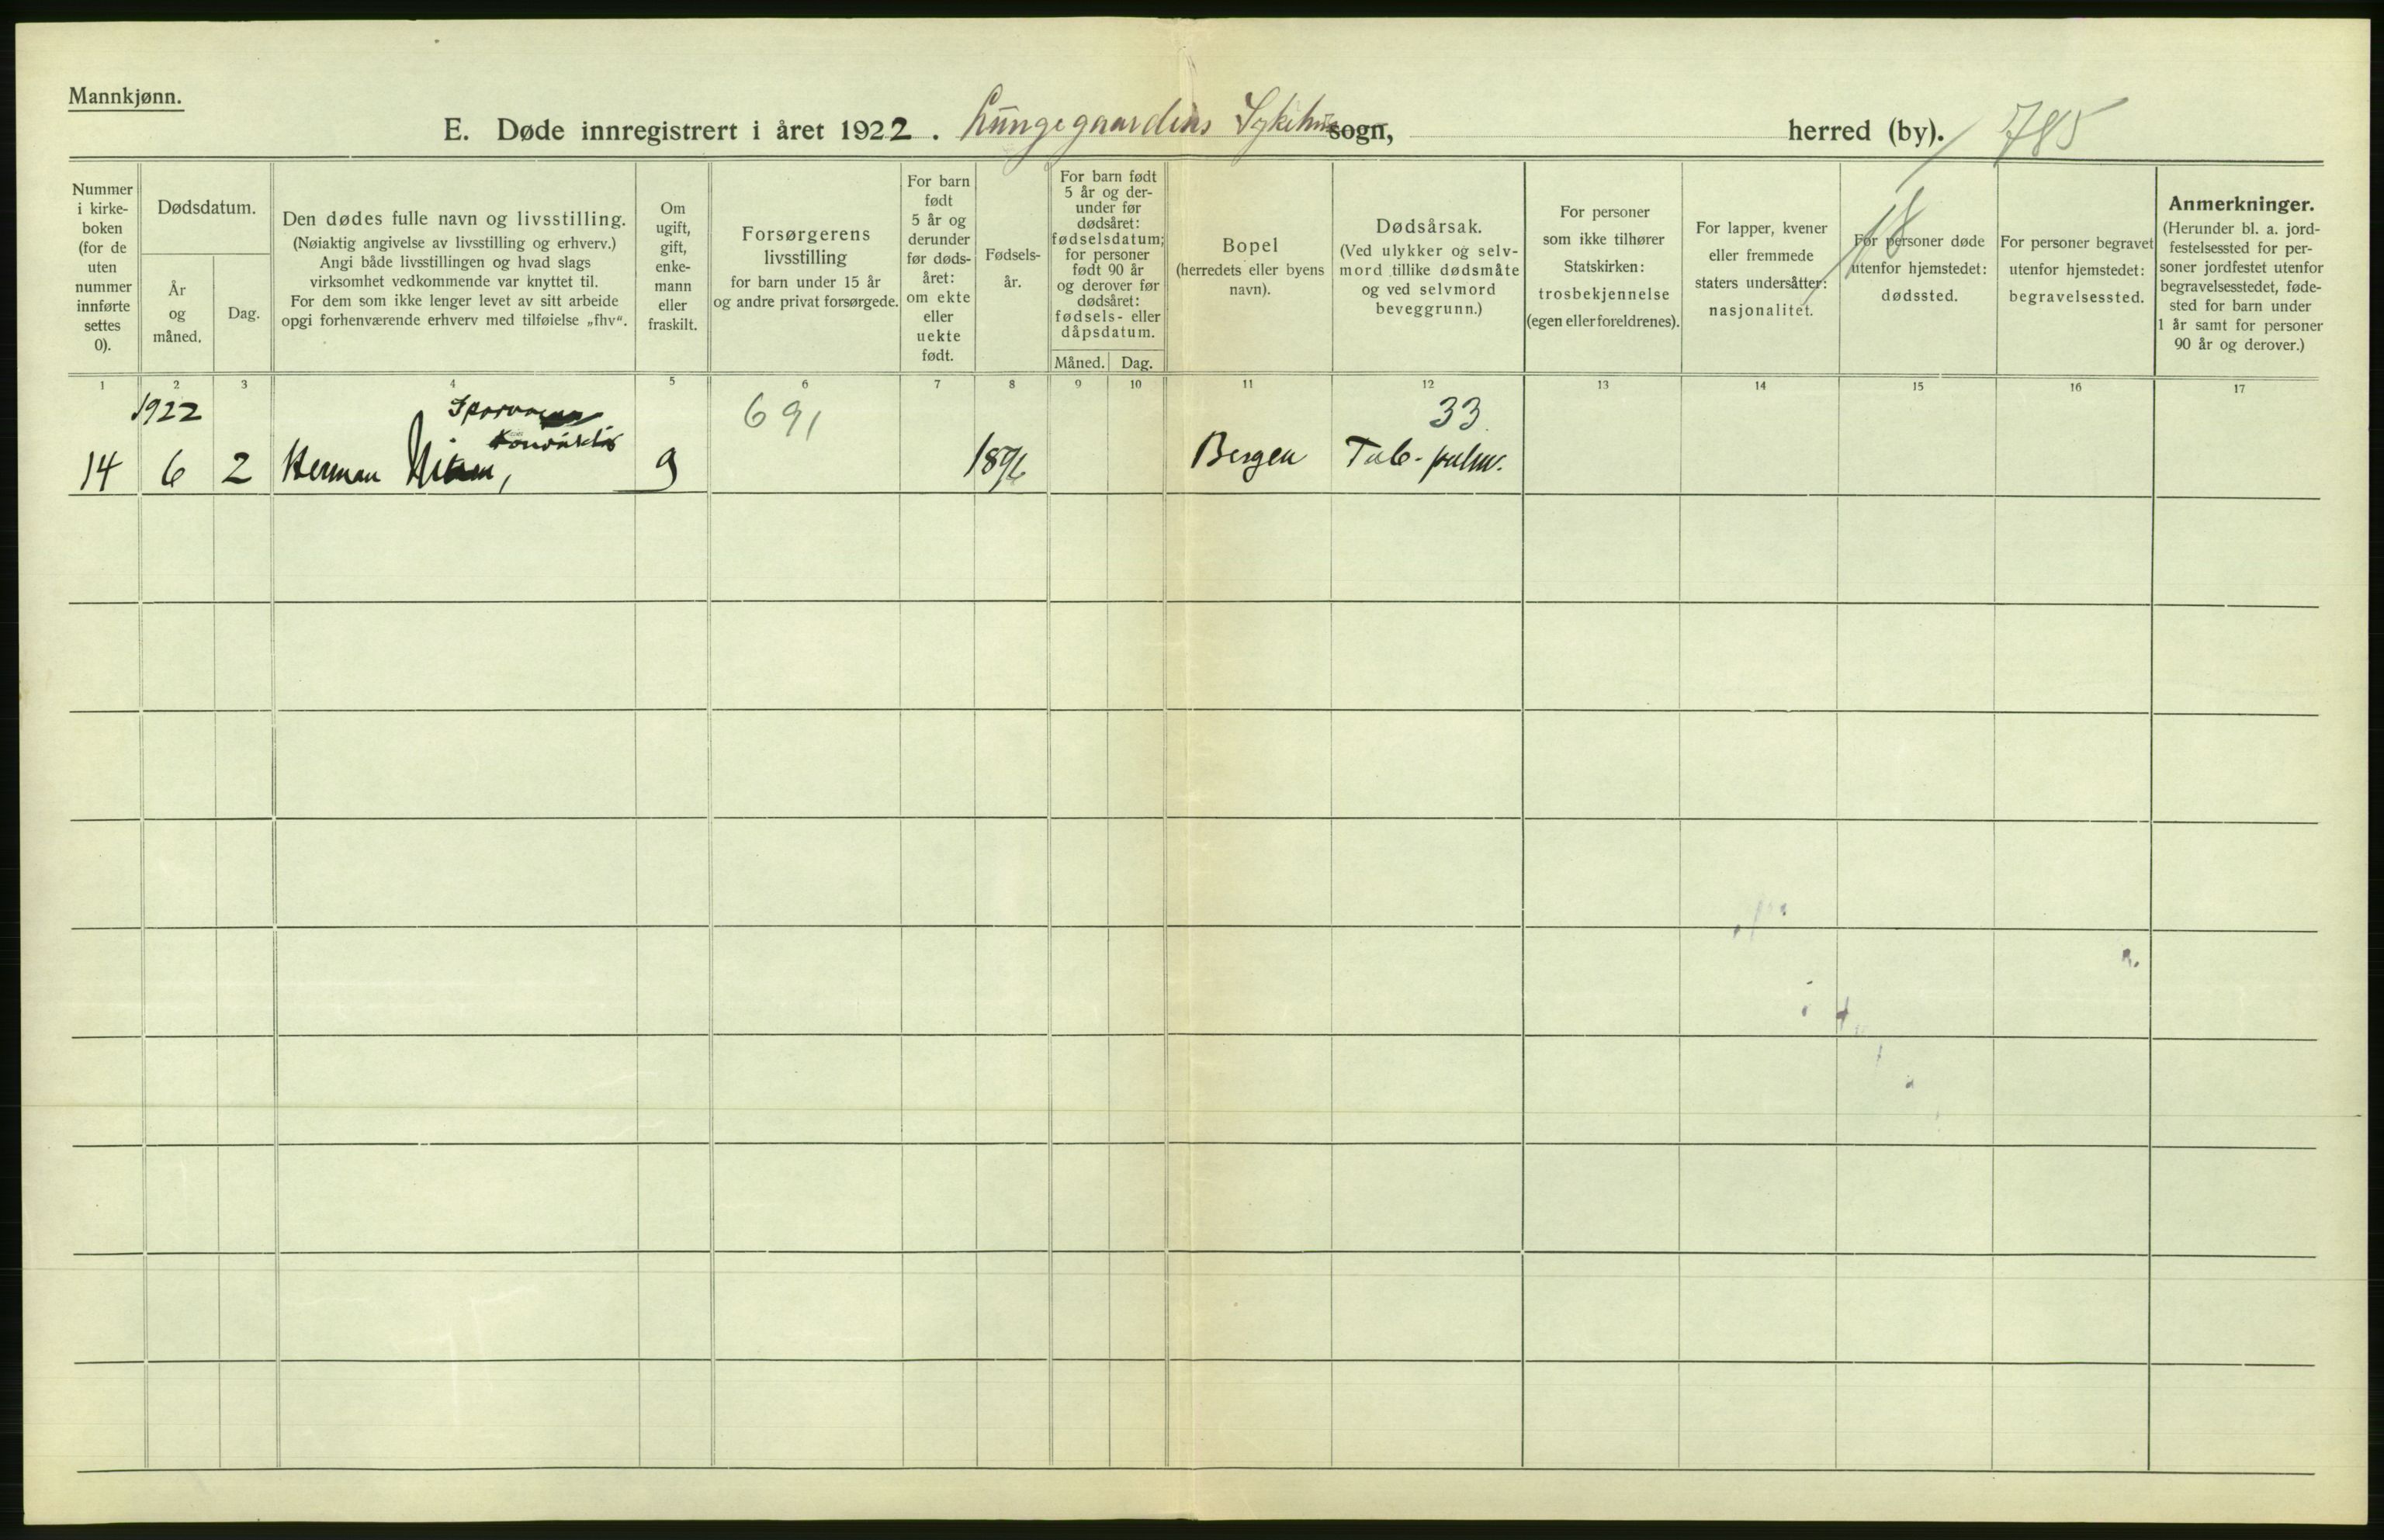 Mannkjønn.
E. Døde innregistrert i året 1922. Lungegaardens Sykehus sogn, herred (by). 785
18
Nummer
i kirke-
boken
(for de
uten
nummer
innførte
settes
0).
Dødsdatum.
År
og
måned.
Dag.
Den dødes fulle navn og livsstilling.
(Nøiaktig angivelse av livsstilling og erhverv.)
Angi både livsstillingen og hvad slags
virksomhet vedkommende var knyttet til.
For dem som ikke lenger levet av sitt arbeide
opgi forhenværende erhverv med tilføielse „fhv“.
Om
ugift,
gift,
enke-
mann
eller
fraskilt.
Forsørgerens
livsstilling
for barn under 15 år
og andre privat forsørgede.
For barn
født
5 år og
derunder
før døds-
året:
om ekte
eller
uekte
født.
Fødsels-
år.
For barn født
5 år og der-
under før
dødsåret:
fødselsdatum;
for personer
født 90 år
og derover før
dødsåret:
fødsels- eller
dåpsdatum.
Måned. Dag.
Bopel
(herredets eller byens
navn).
Dødsårsak.
(Ved ulykker og selv-
mord tillike dødsmåte
og ved selvmord
beveggrunn.)
For personer
som ikke tilhører
Statskirken:
trosbekjennelse
(egen eller foreldrenes).
For lapper, kvener
eller fremmede
staters undersåtter:
nasjonalitet.
For personer døde
utenfor hjemstedet:
dødssted.
For personer begravet
utenfor hjemstedet:
begravelsessted.
Anmerkninger.
(Herunder bl. a. jord-
festelsessted for per-
soner jordfestet utenfor
begravelsesstedet, føde-
sted for barn under
1 år samt for personer
90 år og derover.)
1 2 3 4 5 6 7 8 9 10 11 12 13 14 15 16 17
1922 691 33
Konduktør
14 6 2 Herman g 1896 Bergen Tub. pulm.